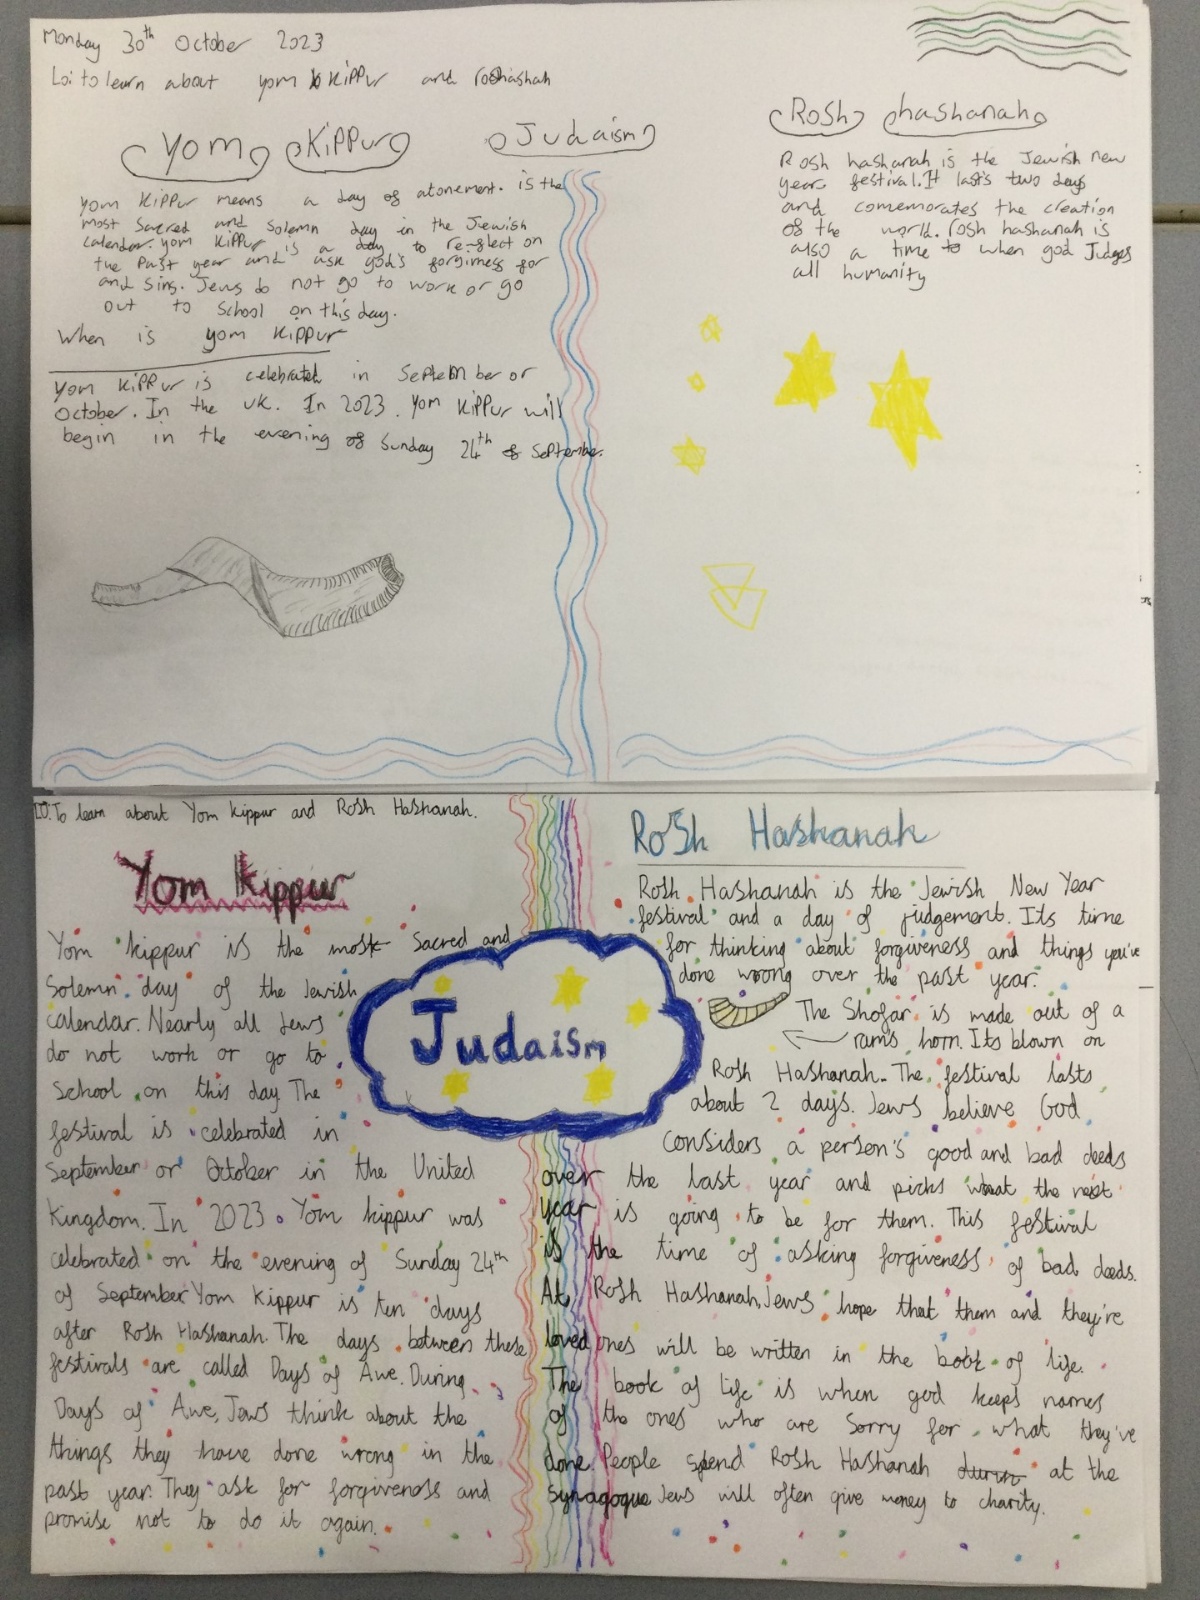 Monday 30th October 2023
Lo: to learn about yom kippur and roshashah
Yom Kippur
Judaism
Rosh hashanah
yom kippur means a day of atonement. is the
most sacred and solemn day in the Jewish
calendar. yom kippur is a day to re-flect on
the past year and ask god's forgivness for
and sins. Jews do not go to work or go
out to school on this day.
When is yom kippur
yom kippur is celebrated in september or
October. In the uk. In 2023. yom kippur will
begin in the evening of sunday 24th of september.
Rosh hashanah is the Jewish new
year festival. It last's two days
and comemorates the creation
of the world. rosh hashanah is
also a time to when god Judges
all humanity
LO: To learn about Yom kippur and Rosh Hashanah.
Yom kippur
Yom kippur is the most sacred and
Solemn day of the Jewish
calendar. Nearly all Jews
do not work or go to
school on this day The
festival is celebrated in
September or October in the United
Kingdom. In 2023. Yom kippur was
celebrated on the evening of Sunday 24th
of September Yom kippur is ten days
after Rosh Hashanah. The days between these
festivals are called Days of Awe. During
Days of Awe, Jews think about the
things they have done wrong in the
past year. They ask for forgiveness and
promise not to do it again.
Judaism
Rosh Hashanah
Rosh Hashanah is the Jewish New Year
festival and a day of judgement. Its time
for thinking about forgiveness and things you've
done wrong over the past year.
The Shofar is made out of a
rams horn. Its blown on
Rosh Hashanah. The festival lasts
about 2 days. Jews believe God
considers a person's good and bad deeds
over the last year and picks what the next
year is going to be for them. This festival
is the time of asking forgiveness of bad deeds.
At Rosh Hashanah, Jews hope that them and they're
loved ones will be written in the book of life.
The book of life is when god keeps names
of the ones who are sorry for what they've
done. People spend Rosh Hashanah at the
synagogue Jews will often give money to charity.